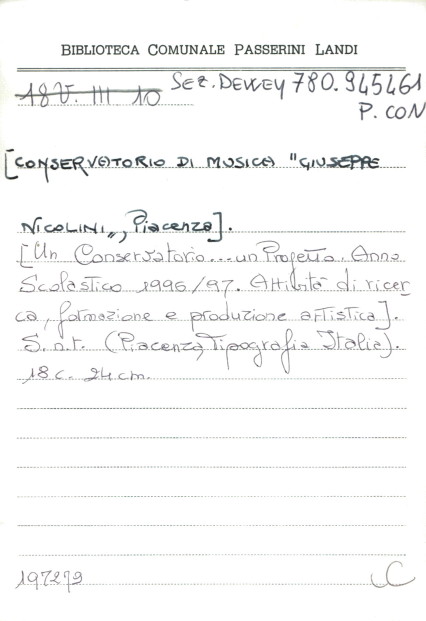 BIBLIOTECA COMUNALE PASSERINI LANDI
18 V. III 10 Sez. DEWEY 780.945461
P. CON
[CONSERVATORIO DI MUSICA "GIUSEPPE
NICOLINI", Piacenza].
[Un Conservatorio... un Progetto. Anno
Scolastico 1996/97. Attività di ricer-
ca, formazione e produzione artistica].
S.n.t. (Piacenza, Tipografia Italia).
18 c. 24 cm.
197279 C